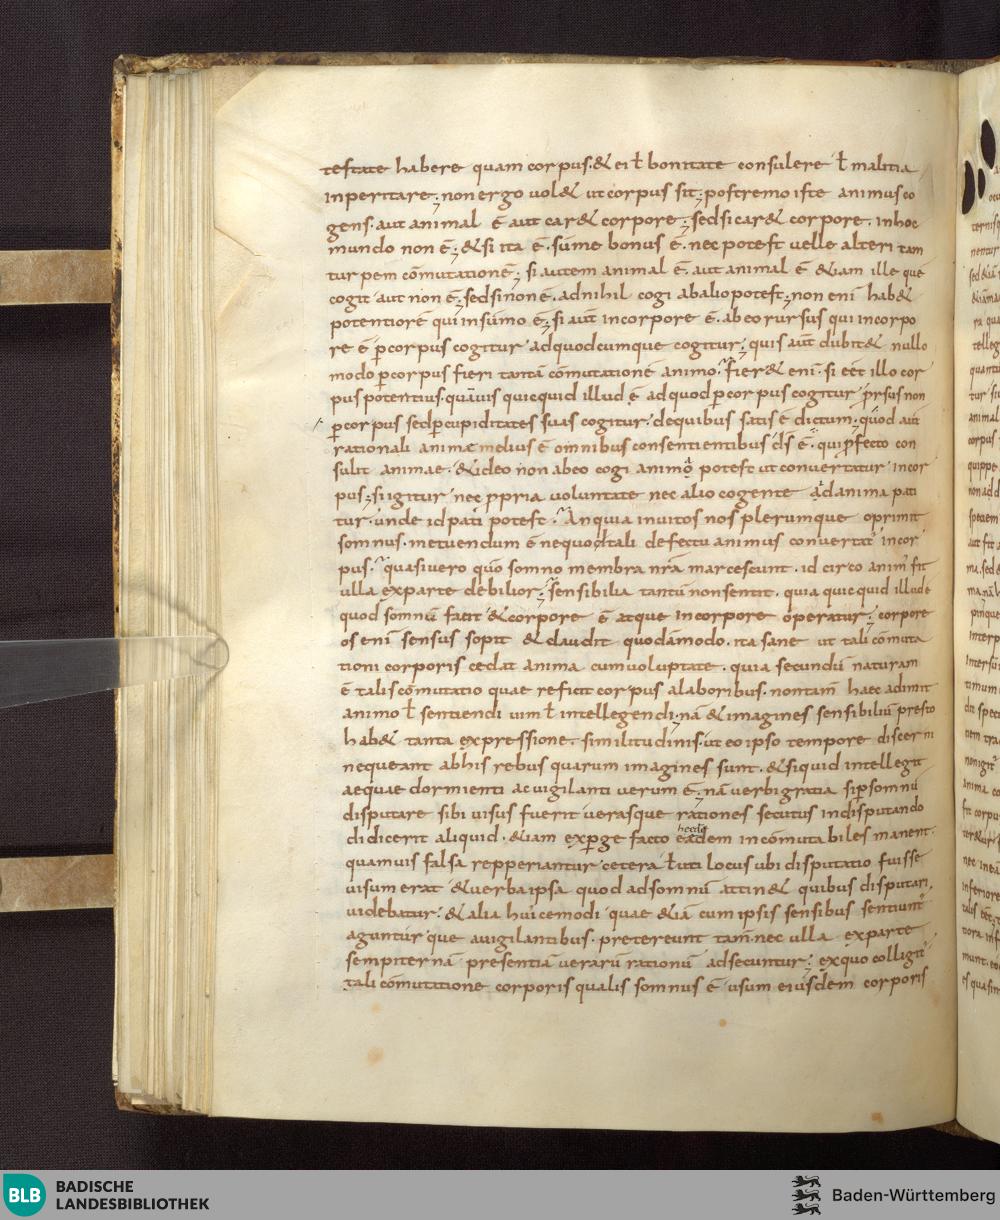 testate habere quam corpus·& ei ł bonitate consulere ł malitia
inperitare; non ergo uol& ut corpus sit; postremo iste animus co
gens· aut animal ē aut car& corpore; sed si car& corpore· in hoc
mundo non ē; & si ita ē· sūme bonus ē· nec potest uelle alteri tam
turpem cōmutationē; si autem animal ē· aut animal ē &iam ille quē
cogit aut non ē; sed si non ē· ad nihil cogi ab alio potest; non eni hab&
potentiorē qui in sūmo ē; si aūt in corpore ē· ab eo rursus qui in corpo
re ē p̄ corpus cogitur ad quodcumque cogitur; quis aūt dubit& nullo
modo p̄ corpus fieri tantā cōmutationē animo· fier& eni· si eēt illo cor
pus potentius· quāuis quicquid illud ē ad quod p̄ corpus cogitur prsus non
p̄ corpus sed p̄ cupiditates suas cogitur· de quibus satis ē dictum; quod aūt
rationali anima melius ē omnibus consentientibus d̄s ē· qui pfecto con
sulit animae· & ideo non ab eo cogi animo potest ut convertatur in cor
pus; si igitur nec ppria uoluntate nec alio cogente ad anima pati
tur· unde id pati potest· An quia inuitos nos plerumque oprimit
somnus· metuendum ē ne quo tali defectu animus convertat in cor
pus· quasi uero quō somno membra nr̄a marcescunt· id circo anim fit
ulla ex parte debilior; sensibilia tantū non sentit· quia quicquid illud ē
quod somnū facit & corpore ē atque in corpore operatur; corpore
os eni sensus sopit & claudit quodāmodo· ita sane ut tali cōmuta
tioni corporis cedat anima cum uoluptate· quia secundū naturam
ē talis cōmutatio quae reficit corpus a laboribus· non tam haec adimit
animo ł sentiendi uim ł intellegendi; nā & imagines sensibiliū presto
hab& tanta expressione· similitudinis· ut eo ipso tempore discerni
nequeant ab his rebus quarum imagines sunt· & si quid intellegit
aeque dormienti ac uigilanti uerum ē; nā uerbi gratia si p somnū
disputare sibi uisus fuerit uerasque rationes secutus in disputando
didicerit aliquid· &iam exp̄gefacto eaedem incōmutabiles manent·
quamuis falsa repperiantur cetera ł uti locus ubi disputatio fuisse
uisum erat & uerba ipsa quod ad somnū attin& quibus disputari
uidebatur· & alia huicemodi quae &iā cum ipsis sensibus sentiunt
agunturque a uigilantibus· pretereunt tam· nec ulla ex parte
sempiternā presentiā uerarū rationū adsecuntur; ex quo colligit
tali cōmutatione corporis qualis somnus ē usum eiusdem corporis
BLB BADISCHE
LANDESBIBLIOTHEK
Baden-Württemberg